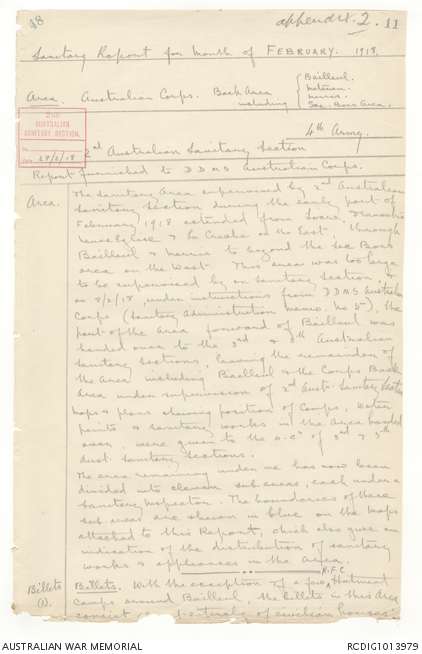 48
appendix. 2. 11
Sanitary Report for Month of FEBRUARY. 1918.
Area. Australian Corps. Back Area including
Bailleul.
Meteren.
Merris.
Sec. Bois Area.
4th Army.
2ND
AUSTRALIAN
SANITARY SECTION.
No.
Date 28/2/18
2nd Australian Sanitary Section
Report furnished to D D M S Australian Corps.
Area.
The Sanitary Area supervised by 2nd Australian
Sanitary Section during the early part of
February 1918 extended from
Neuve Eglise & Le Creche on the East, through
Bailleul & Merris to beyond the Sec Bois
area on the West. This area was too large
to be supervised by one Sanitary Section, &
on 8/2/18, under instructions from D D M S Australian
Corps (Sanitary Administration Memo. No 5), the
part of the Area forward of Bailleul was
handed over to the 3rd & 5th Australian
Sanitary Sections, leaving the remainder of
the Area including Bailleul & the Corps Back
Area under supervision of 2nd Aust. Sanitary Section
Maps & plans showing position of Camps, water
points & sanitary works in the area handed
over, were given to the O.C's of 3rd & 5th
Aust. Sanitary Sections.
The area remaining under me has now been
divided into eleven sub areas, each under a
Sanitary Inspector. The boundaries of these
sub areas are shewn in blue on the maps
attached to this Report, which also give an
indication of the distribution of sanitary
works & appliances in the area.
Billets
(1).
R.F.C.
Billets. With the exception of a few Hutment
Camps around Bailleul, the billets in this Area
consist of civilian houses
AUSTRALIAN WAR MEMORIAL
RCDIG1013979